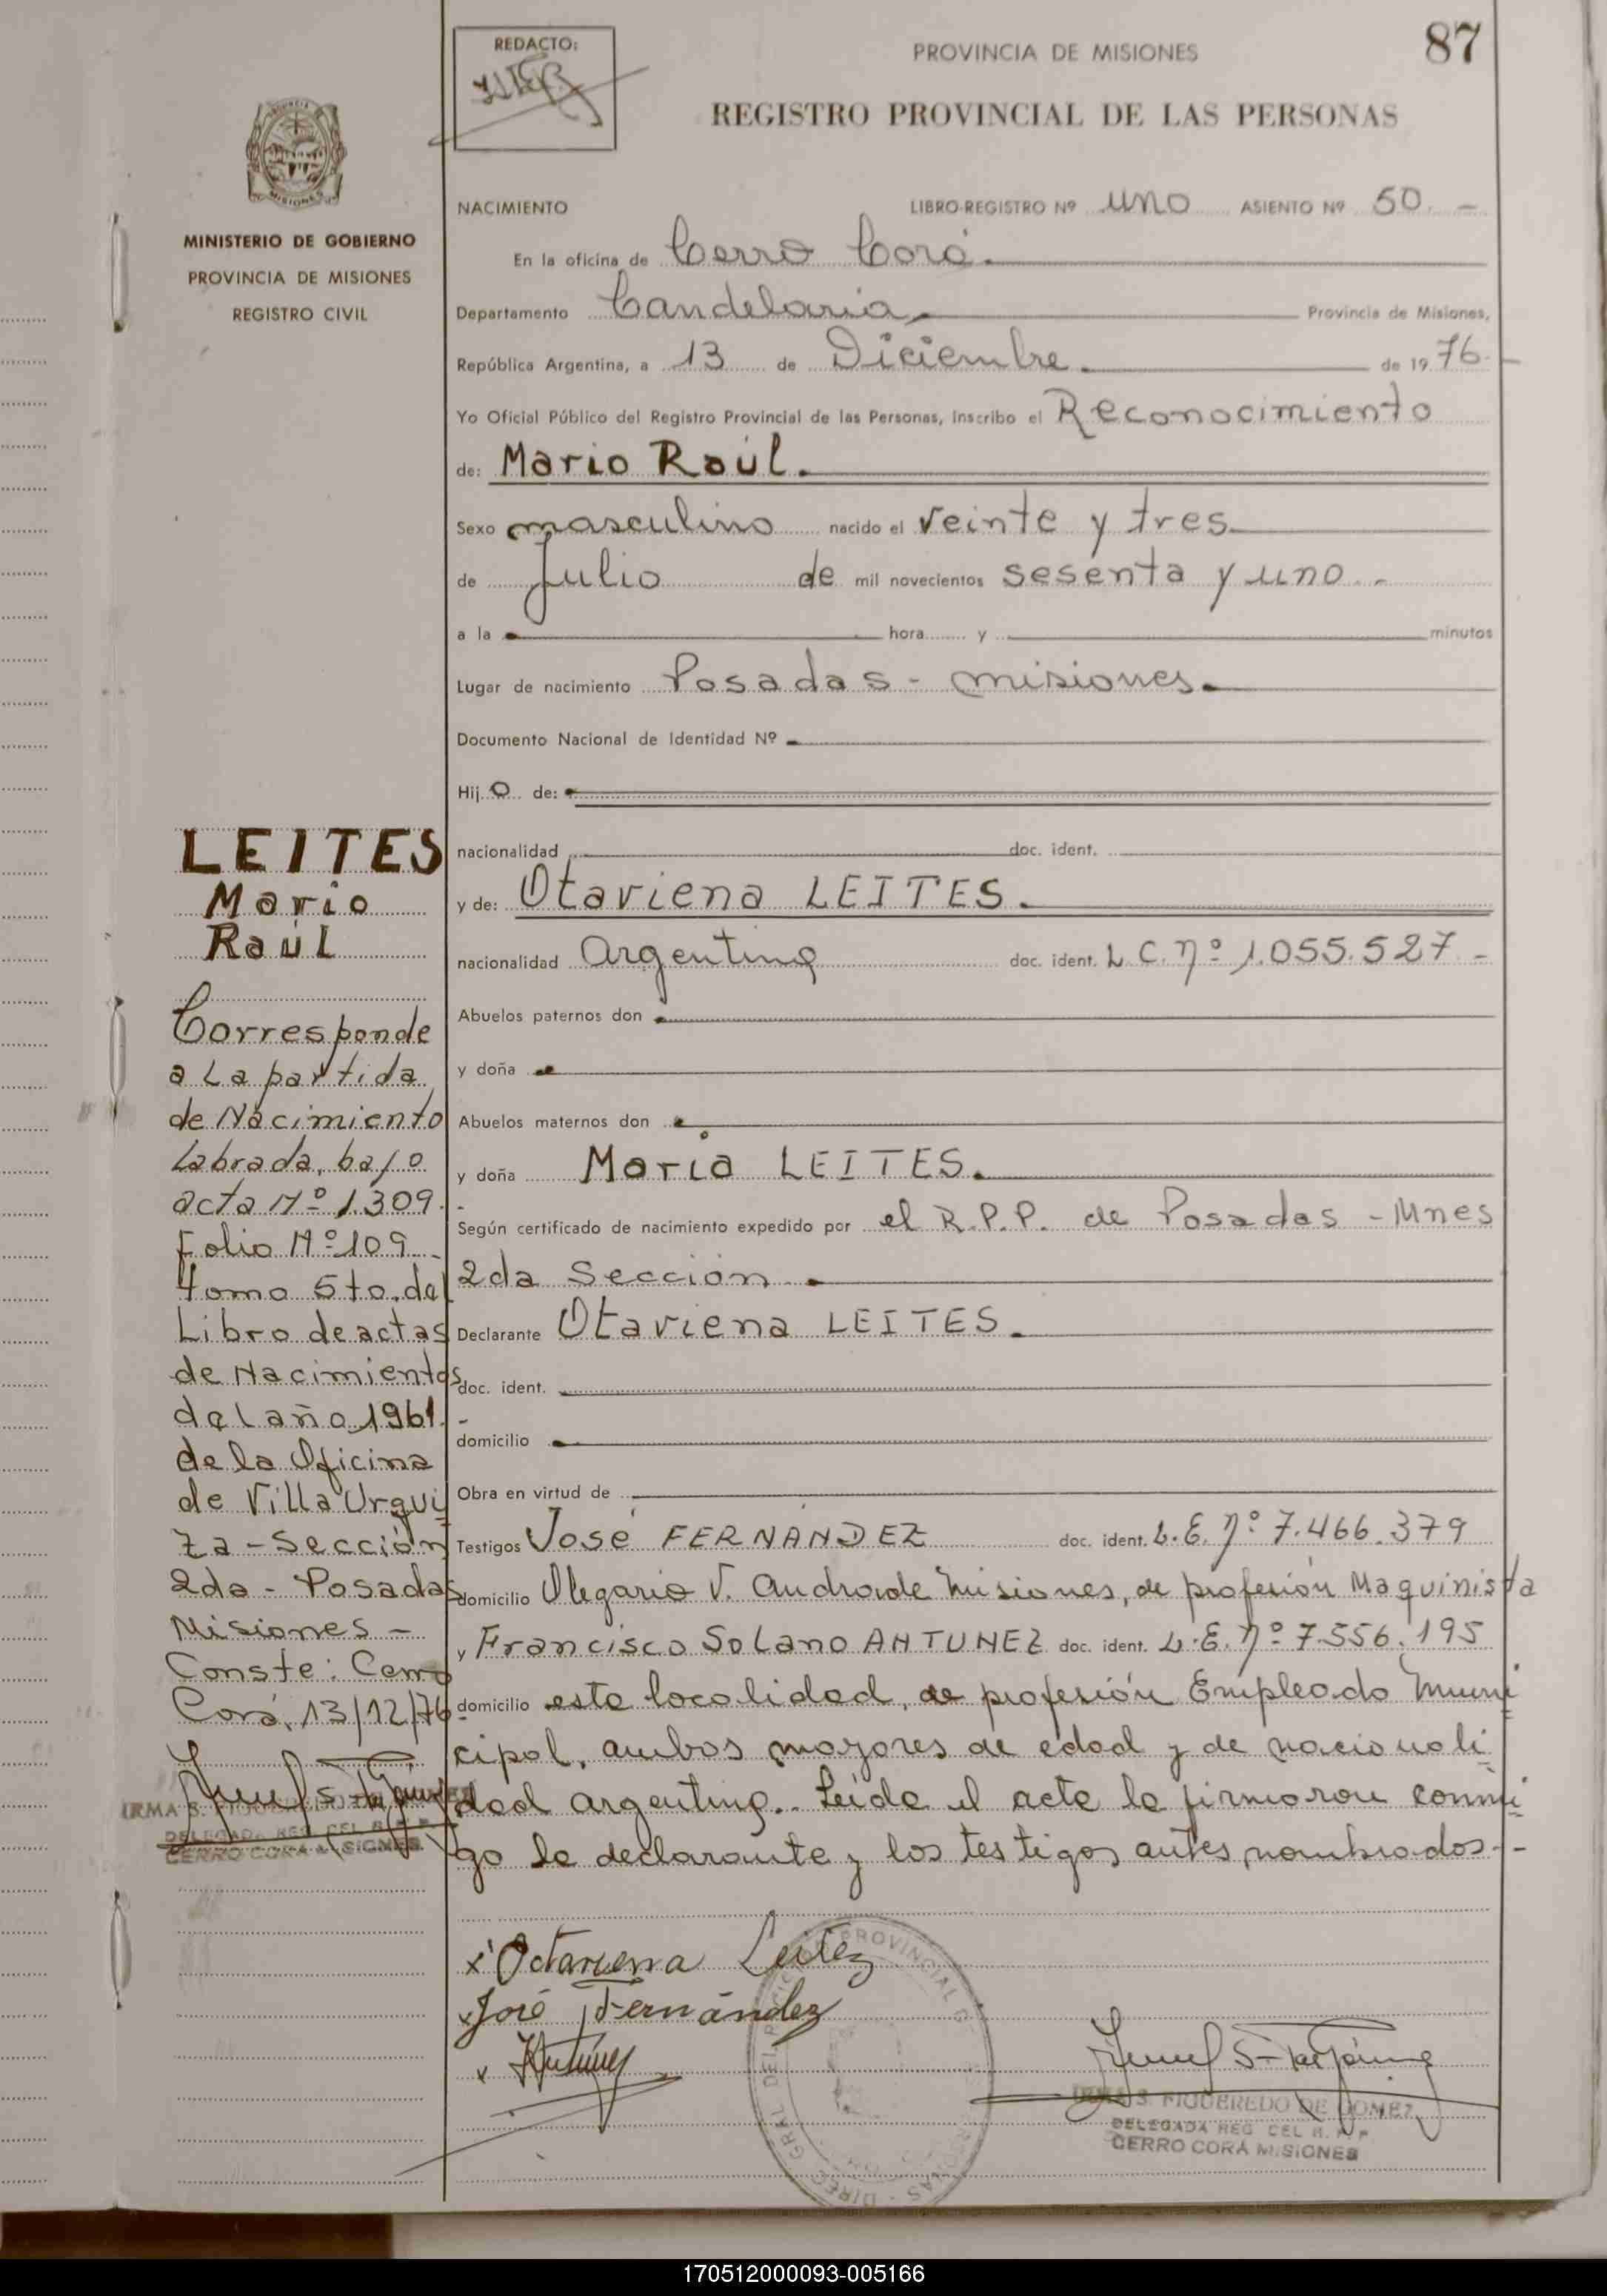 REDACTO:
PROVINCIA DE MISIONES
87
REGISTRO PROVINCIAL DE LAS PERSONAS
MISIONES
MINISTERIO DE GOBIERNO
PROVINCIA DE MISIONES
REGISTRO CIVIL
NACIMIENTO LIBRO-REGISTRO Nº uno ASIENTO Nº 50. -
En la oficina de Cerro Corá.
Departamento Candelaria, Provincia de Misiones,
República Argentina, a 13 de Diciembre. de 1976.-
Yo Oficial Público del Registro Provincial de las Personas, Inscribo el Reconocimiento
de: Mario Raúl.
Sexo masculino nacido el veinte y tres
de Julio de mil novecientos sesenta y uno. -
a la hora y minutos
Lugar de nacimiento Posadas - misiones.
Documento Nacional de Identidad Nº
Hijo de:
nacionalidad doc. ident.
y de: Otaviena LEITES.
nacionalidad Argentina doc. ident. L.C. nº 1.055.527 -
Abuelos paternos don
y doña
Abuelos maternos don
y doña María LEITES.
Según certificado de nacimiento expedido por el R.P.P. de Posadas - Mnes
2da Sección.
Declarante Otaviena LEITES.
doc. ident.
domicilio
Obra en virtud de
Testigos José FERNÁNDEZ doc. ident. L.E. nº 7.466.379
domicilio Olegario V. Andrade Misiones, de profesión Maquinista
y Francisco Solano ANTUNEZ doc. ident. L.E. nº 7.556.195
domicilio esta localidad, de profesión Empleado Muni
cipal, ambos mayores de edad y de nacionali
dad argentina.. Leída el acta la firmaron conmi
go la declarante y los testigos antes nombrados.-
LEITES
Mario
Raúl
Corresponde
a la partida
de Nacimiento
Labrada, bajo
acta Nº 1.309.-
Folio Nº 109
tomo 5to. del
Libro de actas
de Nacimientos
del año 1961.-
de la Oficina
de Villa Urqui
za - Sección
2da - Posadas
Misiones -
Conste: Cerro
Corá, 13/12/76.
IRMA S. FIGUEREDO
DELEGADA REG. CEL R. P. P.
CERRO CORA MISIONES
x Octaviena Leitez
x José Fernández
x Antunez
IRMA S. FIGUEREDO DE GOMEZ
DELEGADA REG CEL R. P. P
CERRO CORÁ MISIONES
170512000093-005166